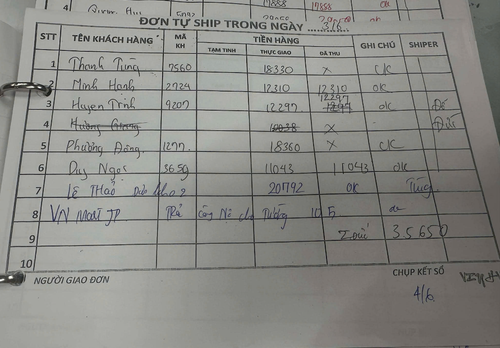 4 17888 17888 ok
ĐƠN TỰ SHIP TRONG NGÀY 3/6
STT TÊN KHÁCH HÀNG MÃ KH TIỀN HÀNG GHI CHÚ SHIPER
TẠM TINH THỰC GIAO ĐÃ THU
1 Thanh Tùng 7560 18330 X CK
2 Minh Hạnh 2724 12310 12310 ok
12297
3 Huyen Trinh 9207 12297 ok
4 Hương X Đức
5 Phương Đông 1277 18360 X CK
6 Duy Ngọc 3659 11043 11043 ok
7 Lê Thảo 201792 OK Tùng
8 VN MART JP Trả Công Nô cho Tường 10 5
9 35650
10
NGƯỜI GIAO ĐƠN CHỤP KẾT SỔ
4/6